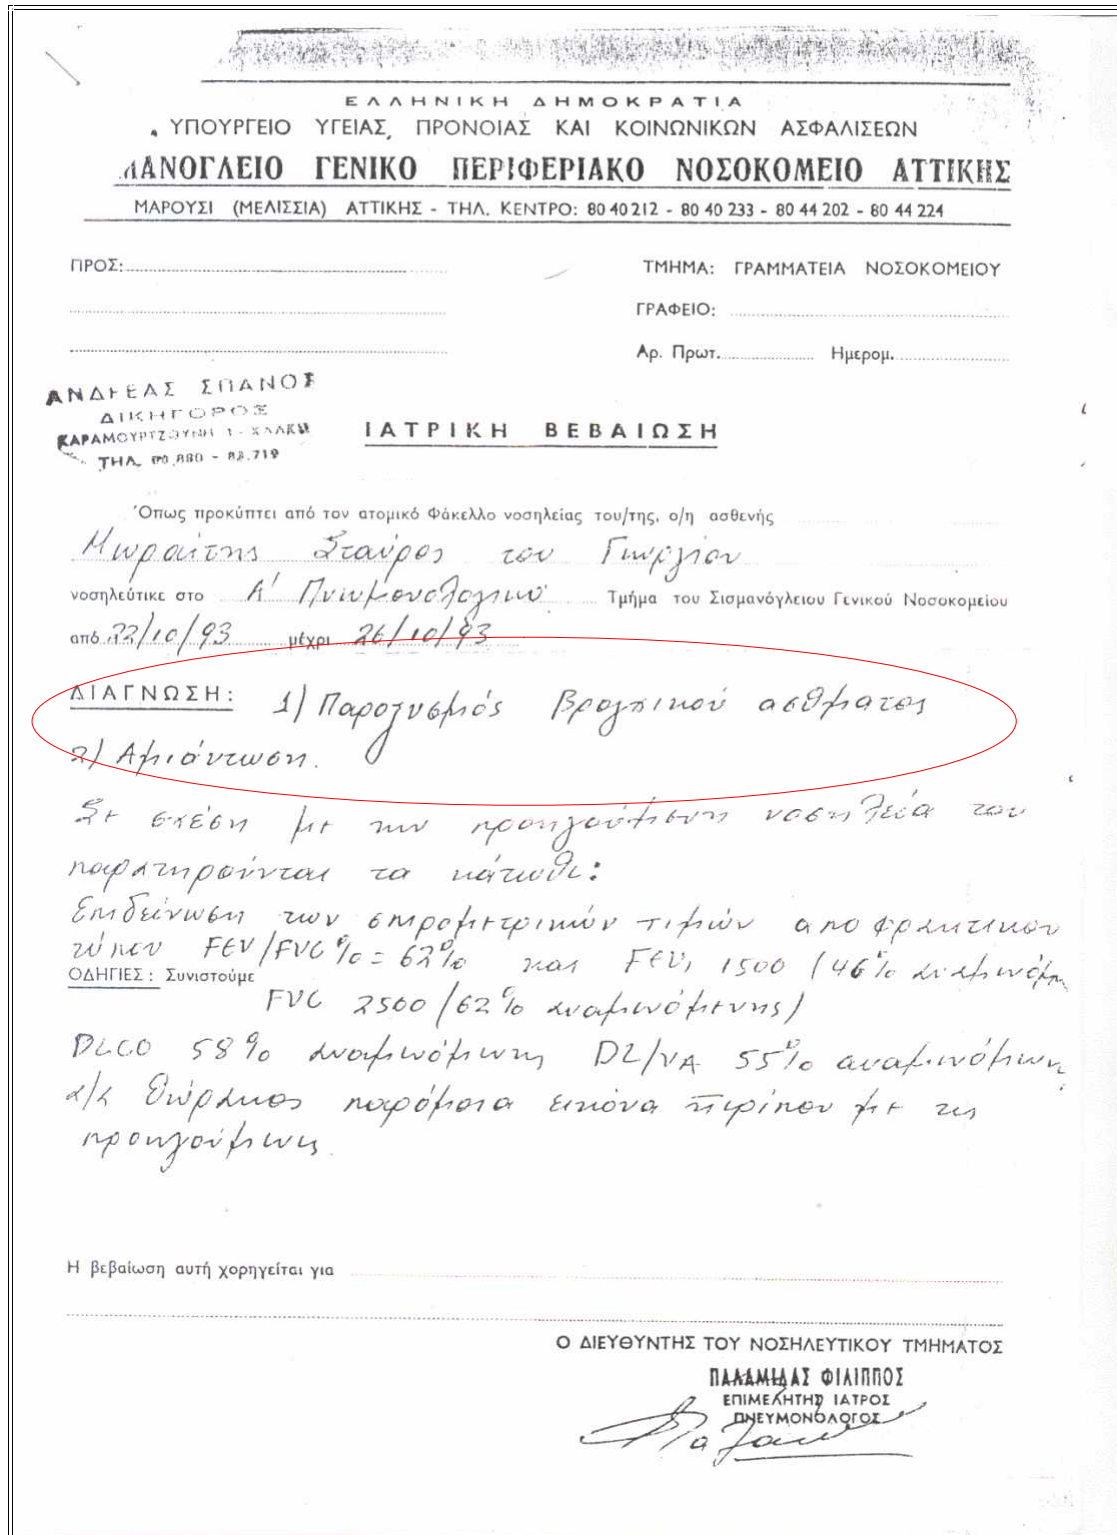 ΕΛΛΗΝΙΚΗ ΔΗΜΟΚΡΑΤΙΑ
ΥΠΟΥΡΓΕΙΟ ΥΓΕΙΑΣ, ΠΡΟΝΟΙΑΣ ΚΑΙ ΚΟΙΝΩΝΙΚΩΝ ΑΣΦΑΛΙΣΕΩΝ
ΜΑΝΟΓΛΕΙΟ ΓΕΝΙΚΟ ΠΕΡΙΦΕΡΙΑΚΟ ΝΟΣΟΚΟΜΕΙΟ ΑΤΤΙΚΗΣ
ΜΑΡΟΥΣΙ (ΜΕΛΙΣΣΙΑ) ΑΤΤΙΚΗΣ - ΤΗΛ. ΚΕΝΤΡΟ: 80 40 212 - 80 40 233 - 80 44 202 - 80 44 224
ΠΡΟΣ:
ΤΜΗΜΑ: ΓΡΑΜΜΑΤΕΙΑ ΝΟΣΟΚΟΜΕΙΟΥ
ΓΡΑΦΕΙΟ:
Αρ. Πρωτ. Ημερομ.
ΑΝΔΡΕΑΣ ΣΠΑΝΟΣ
ΔΙΚΗΓΟΡΟΣ
ΚΑΡΑΜΟΥΡΤΖΟΥΝΗ
ΤΗΛ.
ΙΑΤΡΙΚΗ ΒΕΒΑΙΩΣΗ
Όπως προκύπτει από τον ατομικό Φάκελλο νοσηλείας του/της, ο/η ασθενής
Μωραΐτης Σταύρος του Γεωργίου
νοσηλεύτικε στο Α' Πνευμονολογικό Τμήμα του Σισμανόγλειου Γενικού Νοσοκομείου
από 22/10/93 μέχρι 26/10/93
ΔΙΑΓΝΩΣΗ: 1) Παροξυσμός βρογχικού ασθματος
2) Αμιάντωση.
Σε σχέση με την προηγούμενη νοσηλεία του
παρατηρούνται τα κάτωθι:
Επιδείνωση των σπιρομετρικών τιμών αποφρακτικού
τύπου FEV/FVC % = 62% και FEV₁ 1500 (46% αναμενόμ
ΟΔΗΓΙΕΣ: Συνιστούμε
FVC 2500 (62% αναμενόμενης)
DLCO 58% αναμενόμενη DL/VA 55% αναμενόμενη
α/α θώρακος παρόμοια εικόνα περίπου με τις
προηγούμενες.
Η βεβαίωση αυτή χορηγείται για
Ο ΔΙΕΥΘΥΝΤΗΣ ΤΟΥ ΝΟΣΗΛΕΥΤΙΚΟΥ ΤΜΗΜΑΤΟΣ
ΠΑΛΑΜΙΔΑΣ ΦΙΛΙΠΠΟΣ
ΕΠΙΜΕΛΗΤΗΣ ΙΑΤΡΟΣ
ΠΝΕΥΜΟΝΟΛΟΓΟΣ